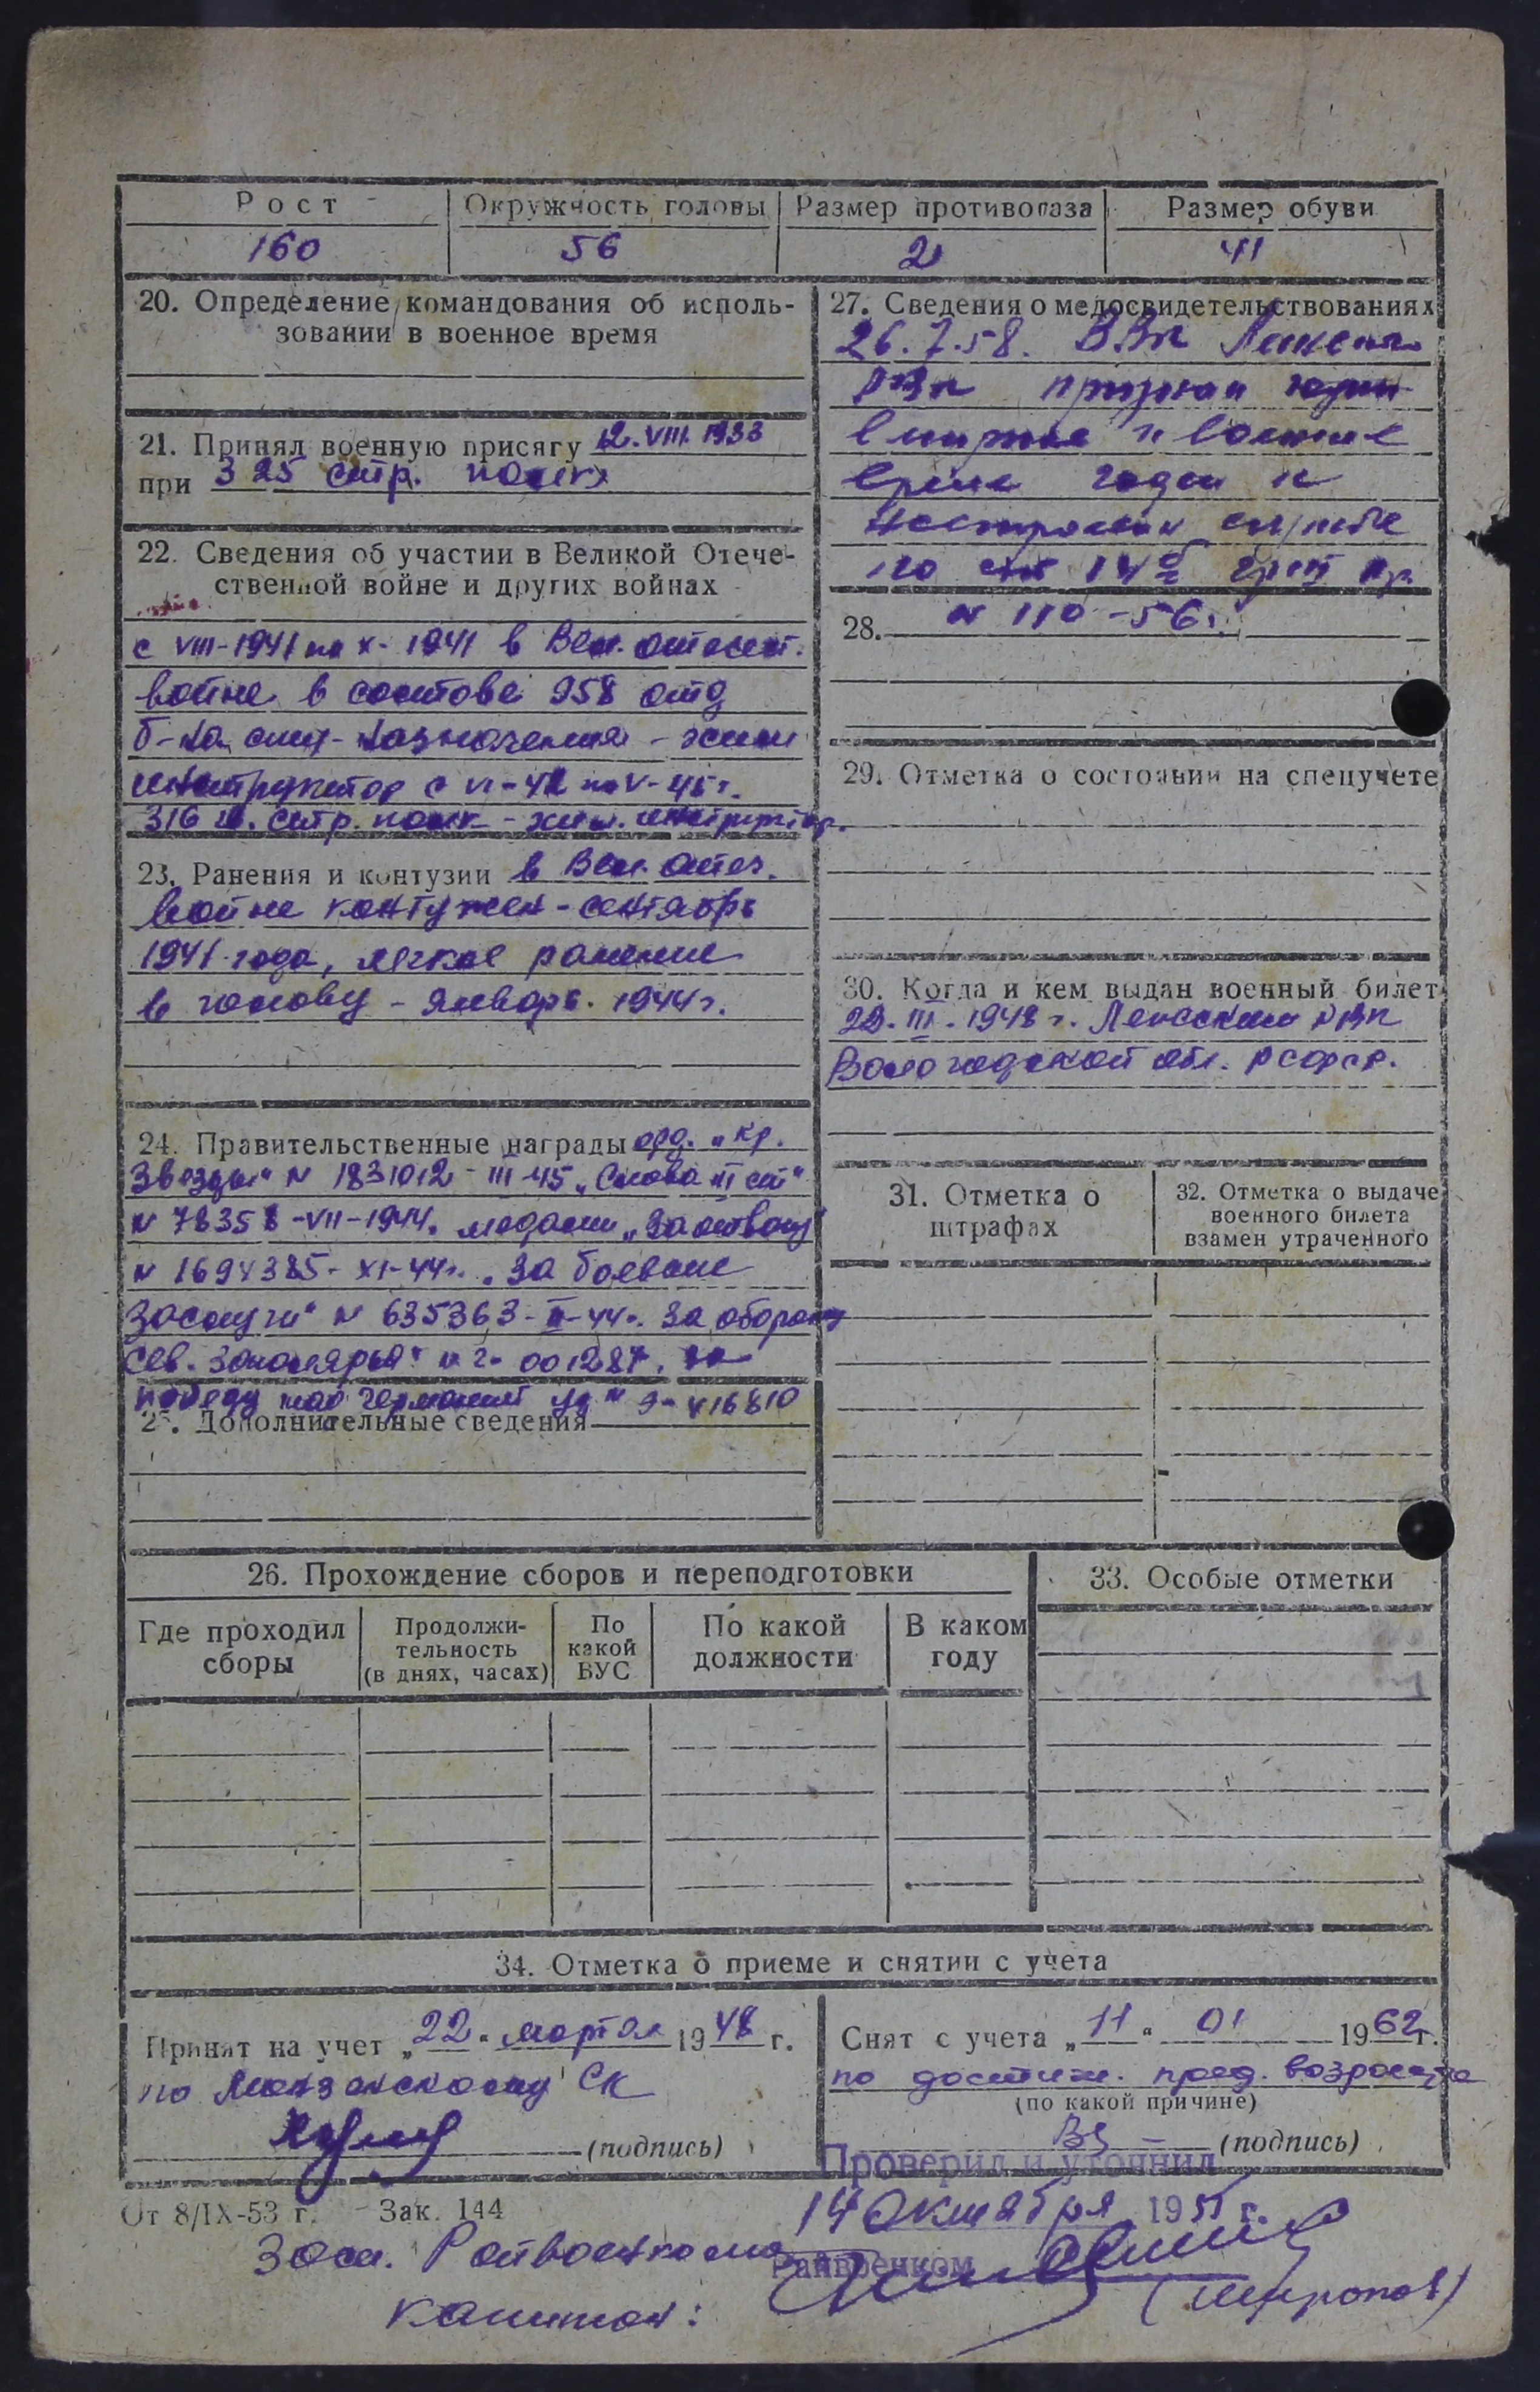 Рост Окружность головы Размер противогаза Размер обуви
160 56 2 41
20. Определение командования об исполь-
зовании в военное время
21. Принял военную присягу 12.VIII.1933
при 325 стр. полку
22. Сведения об участии в Великой Отече-
ственной войне и других войнах
с VIII-1941 по X-1941 в Вел. отечест.
войне в составе 958 отд
б-на спец-назначения - хим
инструктор с VI-42 по V-45 г.
316 стр. полк - хим. инструктор.
23. Ранения и контузии в Вел. отеч.
войне контужен - сентябрь
1941 года, легкое ранение
в голову - январь. 1944 г.
24. Правительственные награды орд. „Кр.
Звезды" N 1831012 - III-45 „Слава III ст"
N 78358 -VII-1944. медали „За отвагу"
N 1694385 - XI-44 г. „За боевые
заслуги" N 635363 - II-44 г. За оборону
Сев. Заполярья" 001287. за
победу над Германией
25. Дополнительные сведения
26. Прохождение сборов и переподготовки
Где проходил
сборы
Продолжи-
тельность
(в днях, часах)
По
какой
ВУС
По какой
должности
В каком
году
27. Сведения о медосвидетельствованиях
26.7.58. ВВК
РВК признан годен
в мирное и военное
время годен к
нестроевой службе
по 14 б гр III пр.
28. N 110-56 г.
29. Отметка о состоянии на спецучете
30. Когда и кем выдан военный билет
22. III. 1948 г. РВК
Вологодской обл. РСФСР.
31. Отметка о
штрафах
32. Отметка о выдаче
военного билета
взамен утраченного
33. Особые отметки
34. Отметка о приеме и снятии с учета
Принят на учет „22" марта 1948 г.
по СК
(подпись)
Снят с учета „11" 01 1962 г.
по достиж. пред. возраста
(по какой причине)
(подпись)
Проверил и уточнил
14 октября 195 г.
Райвоенком
От 8/IX-53 г. Зак. 144
Зам. Райвоенкома
капитан: